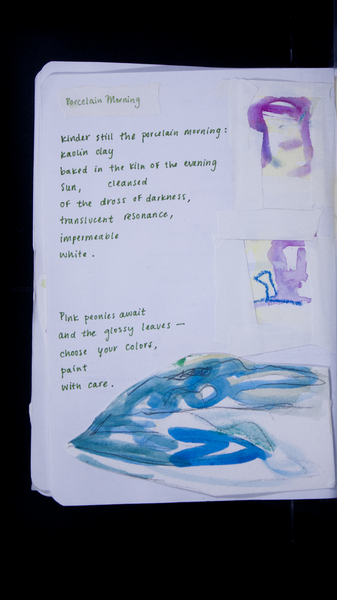 Porcelain Morning
kinder still the porcelain morning:
kaolin clay
baked in the kiln of the evening
sun, cleansed
of the dross of darkness,
translucent resonance,
impermeable
white.
Pink peonies await
and the glossy leaves —
choose your colors,
paint
with care.